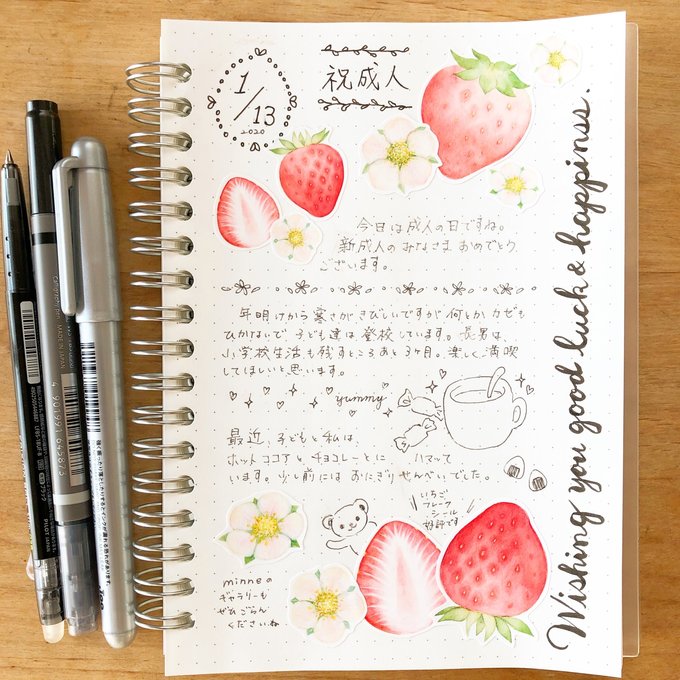 1/13
2020
祝成人
今日は成人の日ですね。
新成人のみなさま おめでとう
ございます。
年明けから寒さがきびしいですが 何とか カゼも
ひかないで 子ども達は 登校しています。長男は、
小学校生活も残すところあと3ヶ月。楽しく満喫
してほしいと思います。
yummy
最近、子どもと私は、
ホットココアと チョコレートに ハマって
います。少し前には おにぎりせんべいでした。
いちご
フレーク
シール
好評です
minneの
ギャラリーも
ぜひごらん
くださいね
Wishing you good luck & happinss.
MADE IN JAPAN
4 901991 613873
PILOT